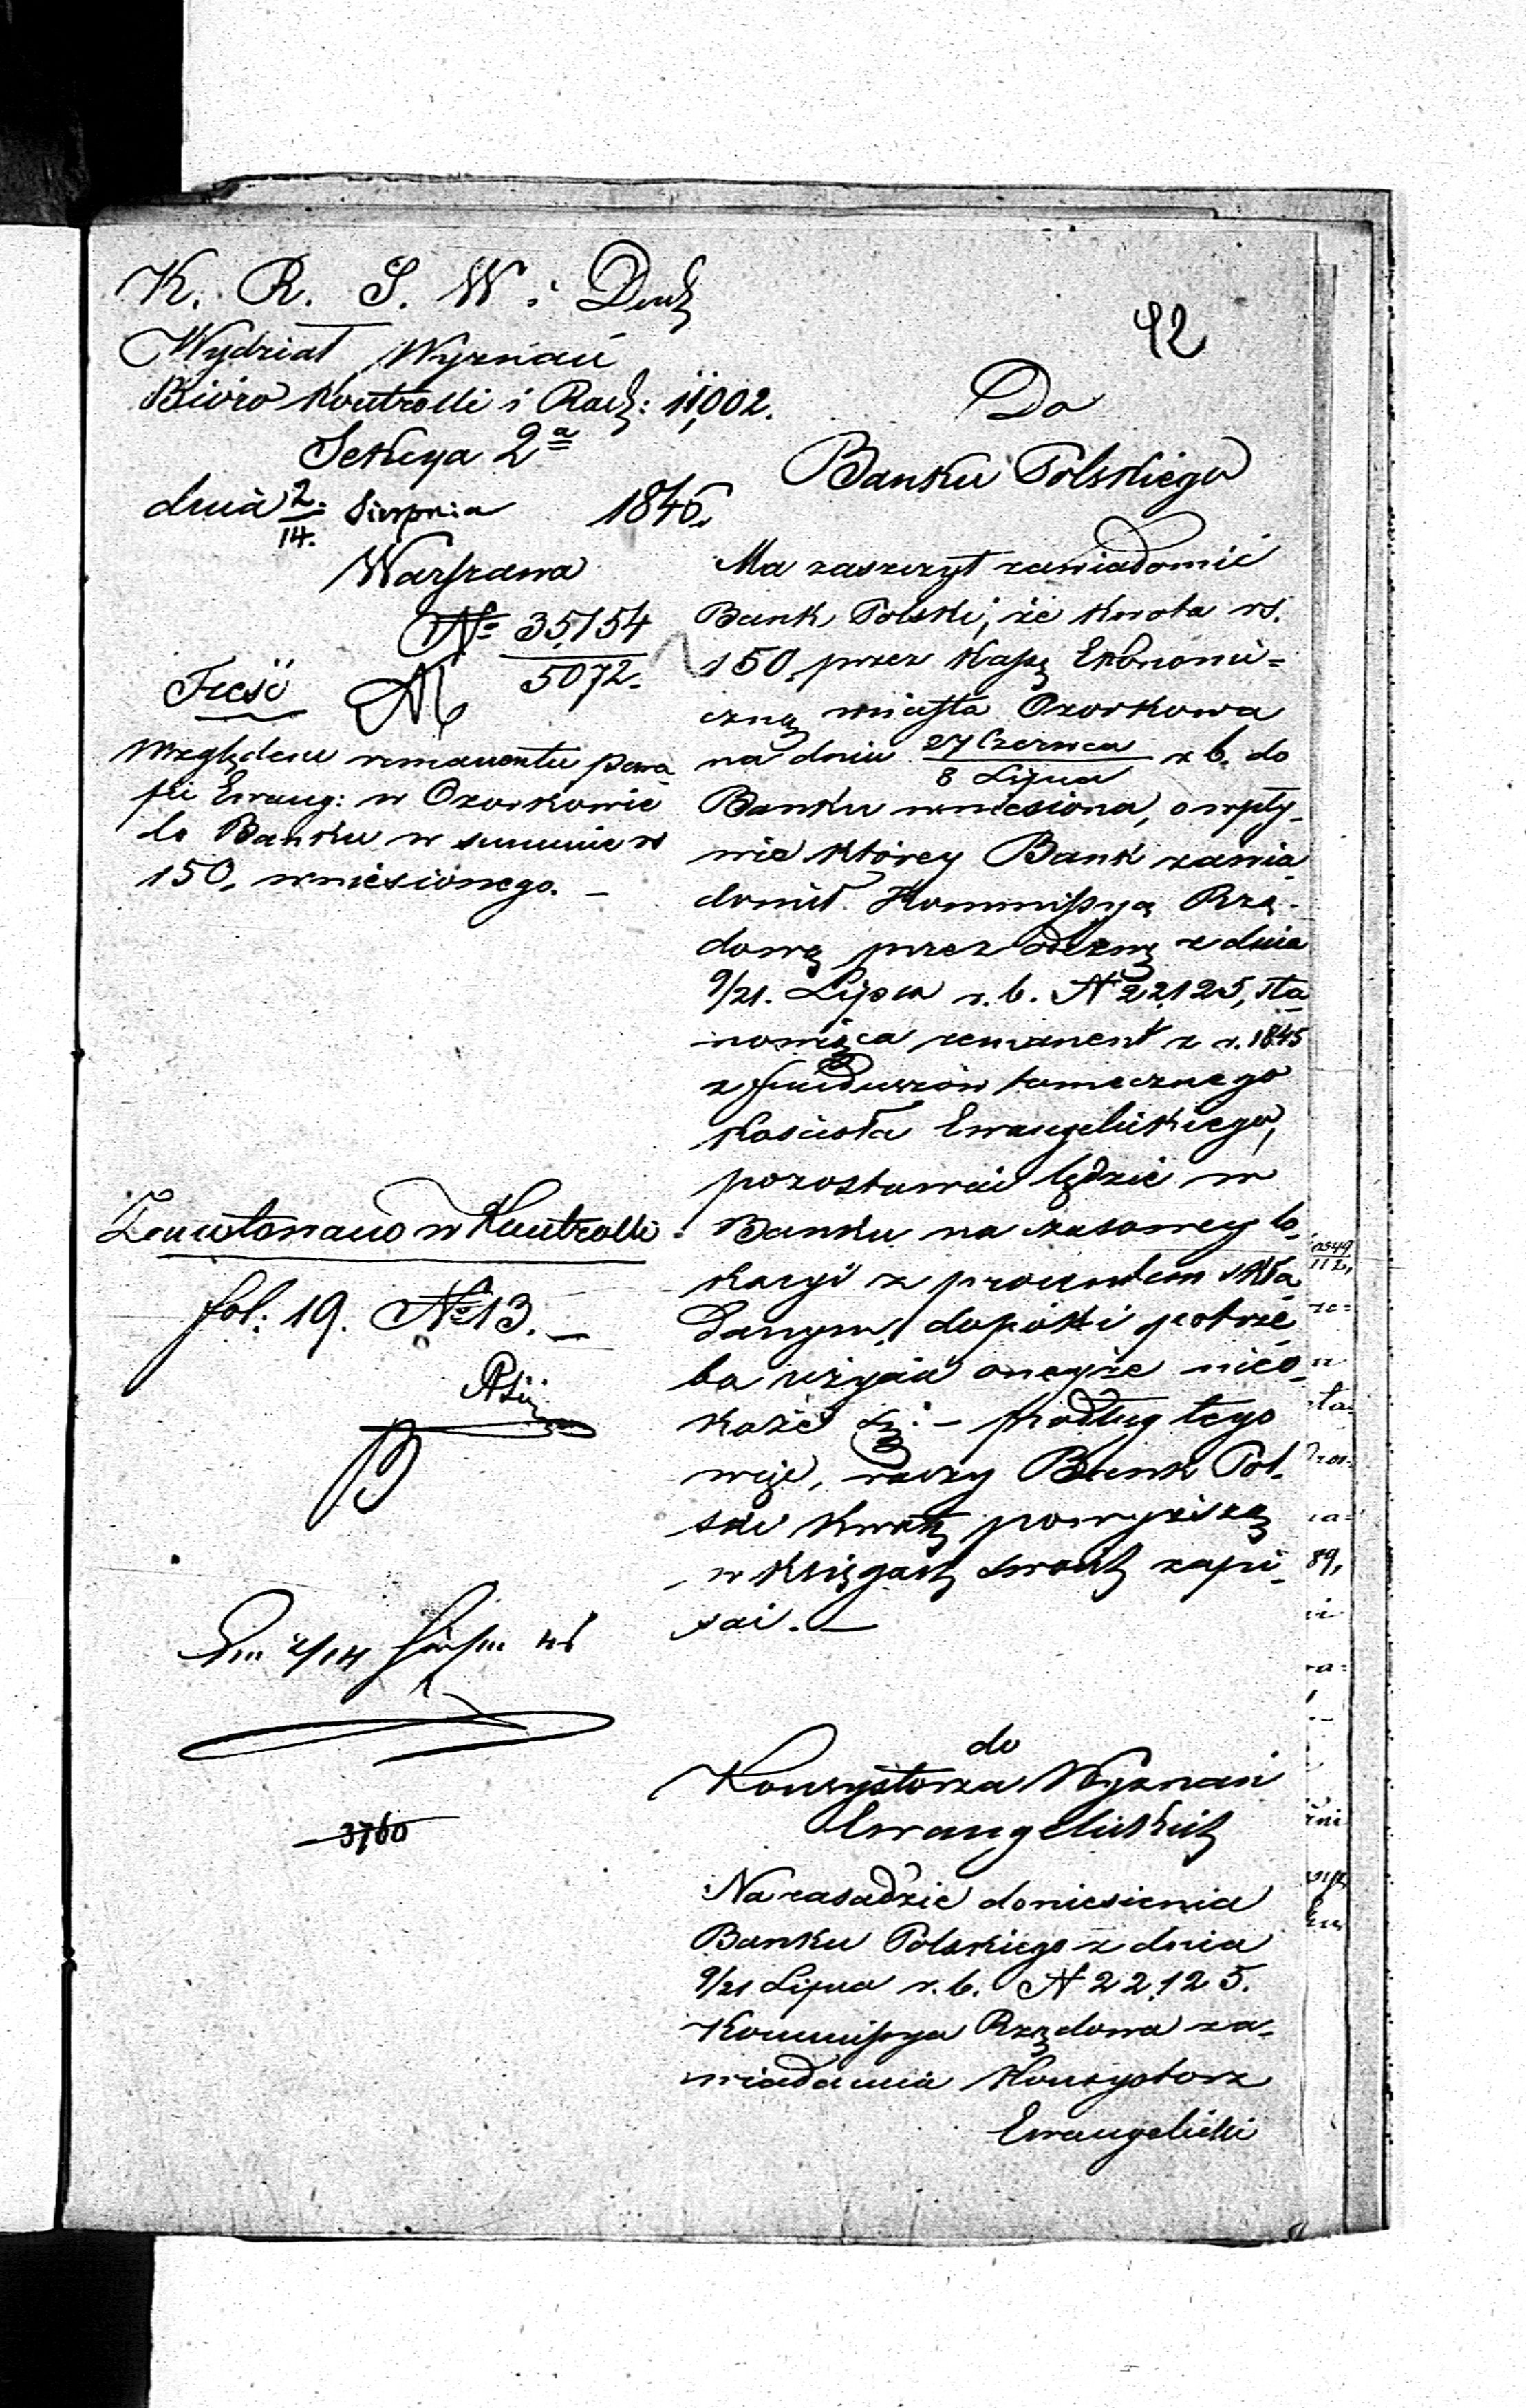 42
K. R. S. W. i Duch
Wydział Wyznań
Bióro Kontrolli i Rach: 11,002.
Sekcya 2ª
dnia 2/14. Sierpnia 1846.
Warszawa
№ 35,154
5072.
Treść
Względem remanentu para
fii Ewang: w Ozorkowie
do Banku w summie rs
150, wniesionego. –
Zanotowano w Kontrolli
fol: 19. № 13. –
3760
Do
Banku Polskiego
Ma zaszczyt zawiadomić
Bank Polski, że kwota rs.
150, przez Kassę Ekonomi=
czną miasta Ozorkowa
na dniu 27 Czerwca/8 Lipca r. b. do
Banku wniesiona, o wpły-
wie którey Bank zawia
domił Kommissyą Rzą-
dową przez odezwę z dnia
9/21. Lipca r. b. № 22,125, sta
nowiąca remanent z r. 1845
z funduszów tamecznego
Kościoła Ewangelickiego,
pozostawać będzie w
Banku na czasowey lo-
kacyi z procentem skła
danym, dopóki potrze
ba użycia oneyże nieo-
każe się: – podług tego
więc, raczy Bank Pol-
ski kwotę powyższą
w księgach swoich zapi-
sać. –
do
Konsystorza Wyznań
Ewangelickich
Na zasadzie doniesienia
Banku Polskiego z dnia
9/21 Lipca r. b. № 22,125.
Kommissya Rządowa za-
wiadamia Konsystorz
Ewangelicki